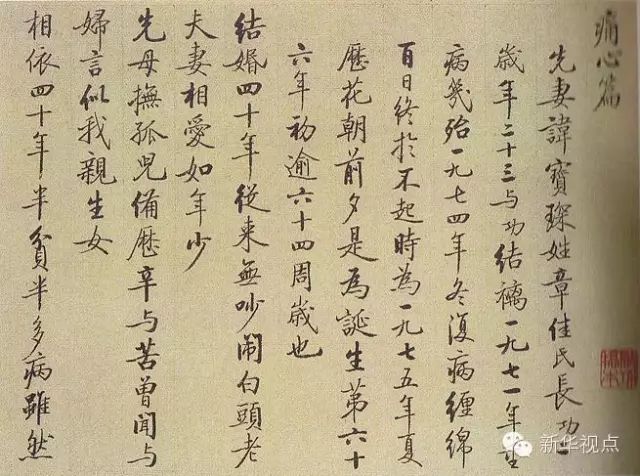 痛心篇
先妻諱寶琛姓章佳氏長功
歲年二十三与功結褵一九七一年
病幾殆一九七四年冬復病纏綿
百日終於不起時為一九七五年夏
歷花朝前夕是為誕生第六十
六年初逾六十四周歲也
結婚四十年從来無吵闹白頭老
夫妻相愛如年少
先母撫孤兒備歷辛与苦曾闻与
婦言似我親生女
相依四十年半貧半多病雖然
新华视点